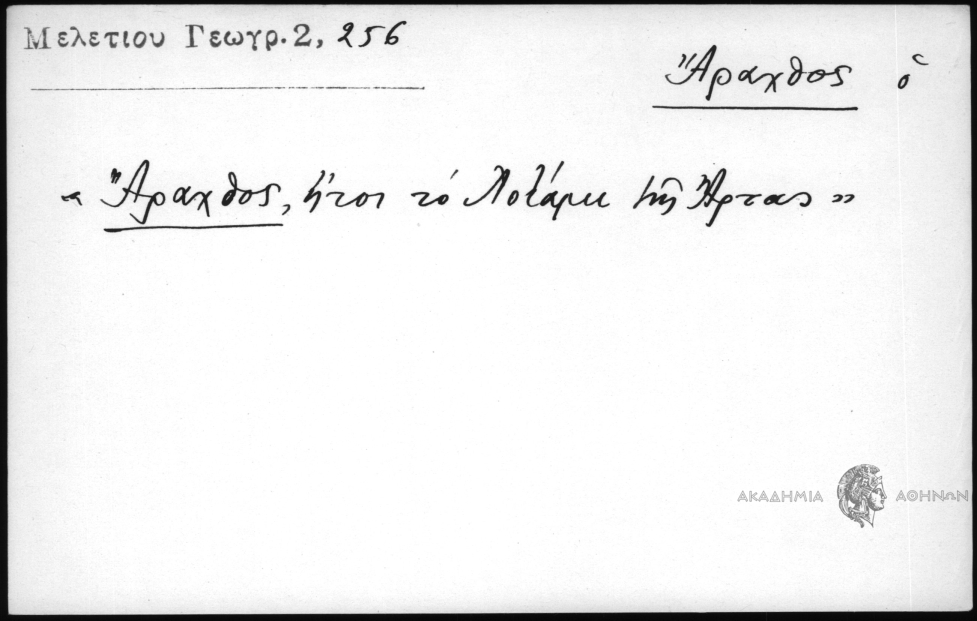 Μελετιου Γεωγρ. 2, 256
Ἄραχθος ὁ
« Ἄραχθος, ἤτοι τό Ποτάμι τῆς Ἄρτας »
ΑΚΑΔΗΜΙΑ ΑΘΗΝΩΝ